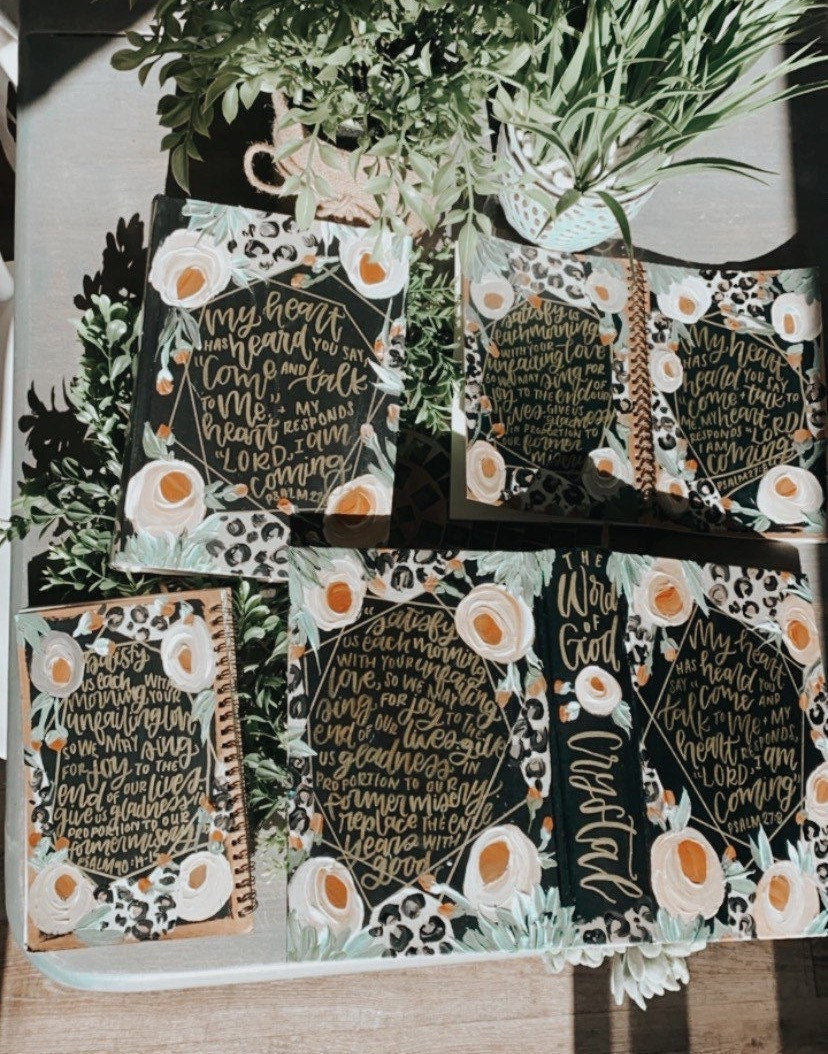 My heart
HAS heard YOU SAY,
"Come AND talk
TO Me," + MY
heart RESPONDS
"LORD, I AM
Coming"
PSALM 27:8
Satisfy us
each morning
WITH YOUR
unfailing love
SO WE MAY sing FOR
joy TO THE end OF
OUR lives. GIVE US
gladness IN
PROPORTION TO
OUR former
misery
My heart
HAS
heard YOU SAY
"Come + talk TO
Me" MY heart
RESPONDS "LORD
I AM
Coming"
PSALM 27:8
Satisfy
US each WITH
morning YOUR
unfailing love
SO WE MAY sing
FOR joy TO THE
end OF OUR lives
give US gladness IN
PROPORTION TO OUR
former misery
PSALM 90:14-15
"Satisfy
US each morning
WITH YOUR unfailing
love, SO WE MAY
sing FOR joy TO THE
END OF OUR lives. give
US gladness IN
PROPORTION TO OUR
former misery
replace THE evil
years WITH
good
THE
Word
OF
God
Crystal
My heart
HAS heard YOU
SAY "Come AND
talk TO Me" + MY
heart RESPONDS,
"LORD, I AM
Coming"
PSALM 27:8